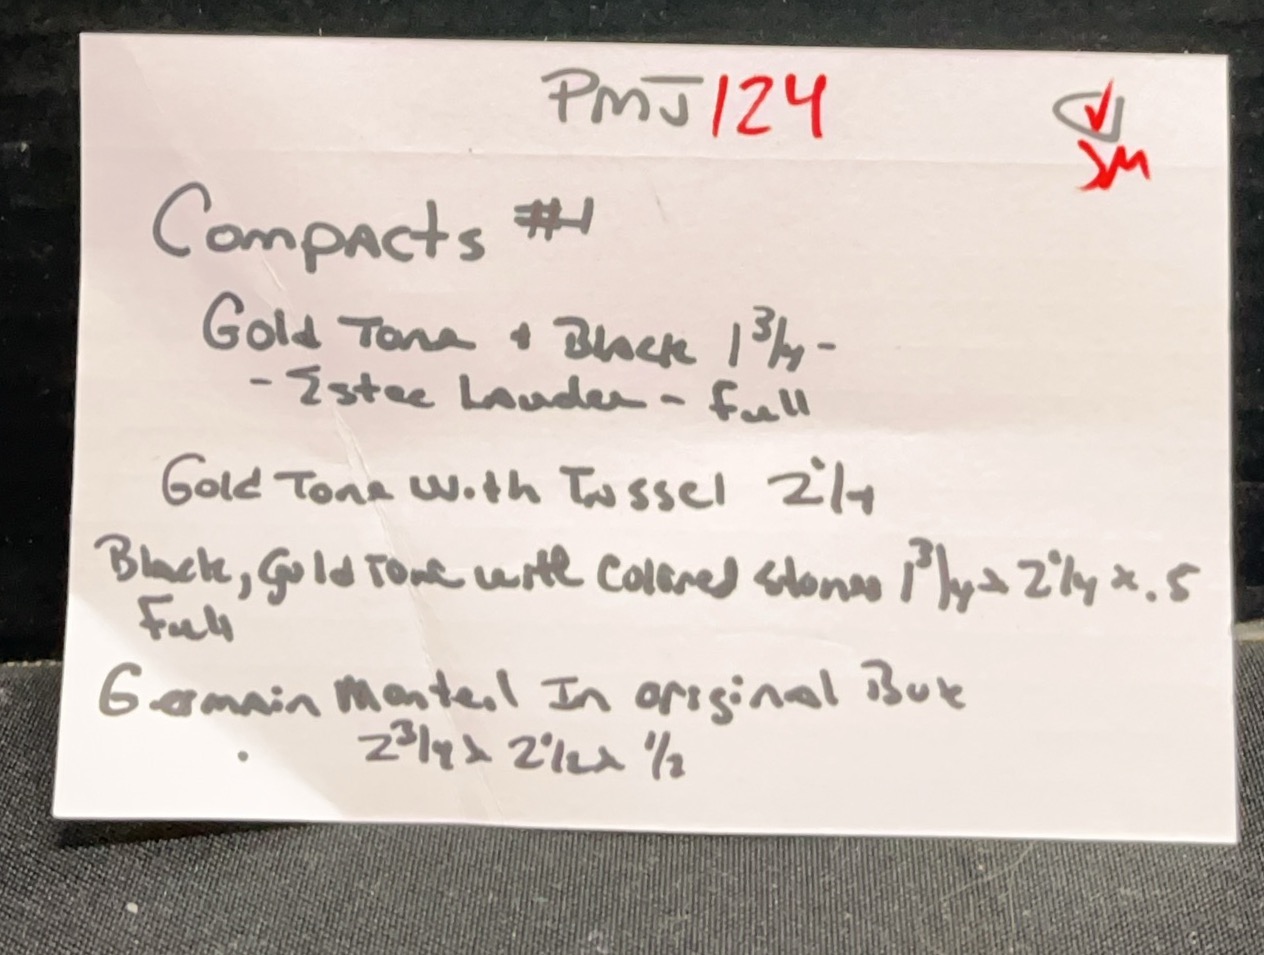 PMJ124
JM
Compacts #1
Gold Tone + Black 1 3/4 -
- Estee Lauder - Full
Gold Tone with Tassel 2 1/4
Black, Gold Tone with Colored Stones 1 3/4 x 2 1/4 x .5
Full
Germain Monteil In original Box
2 3/4 x 2 1/2 x 1/2